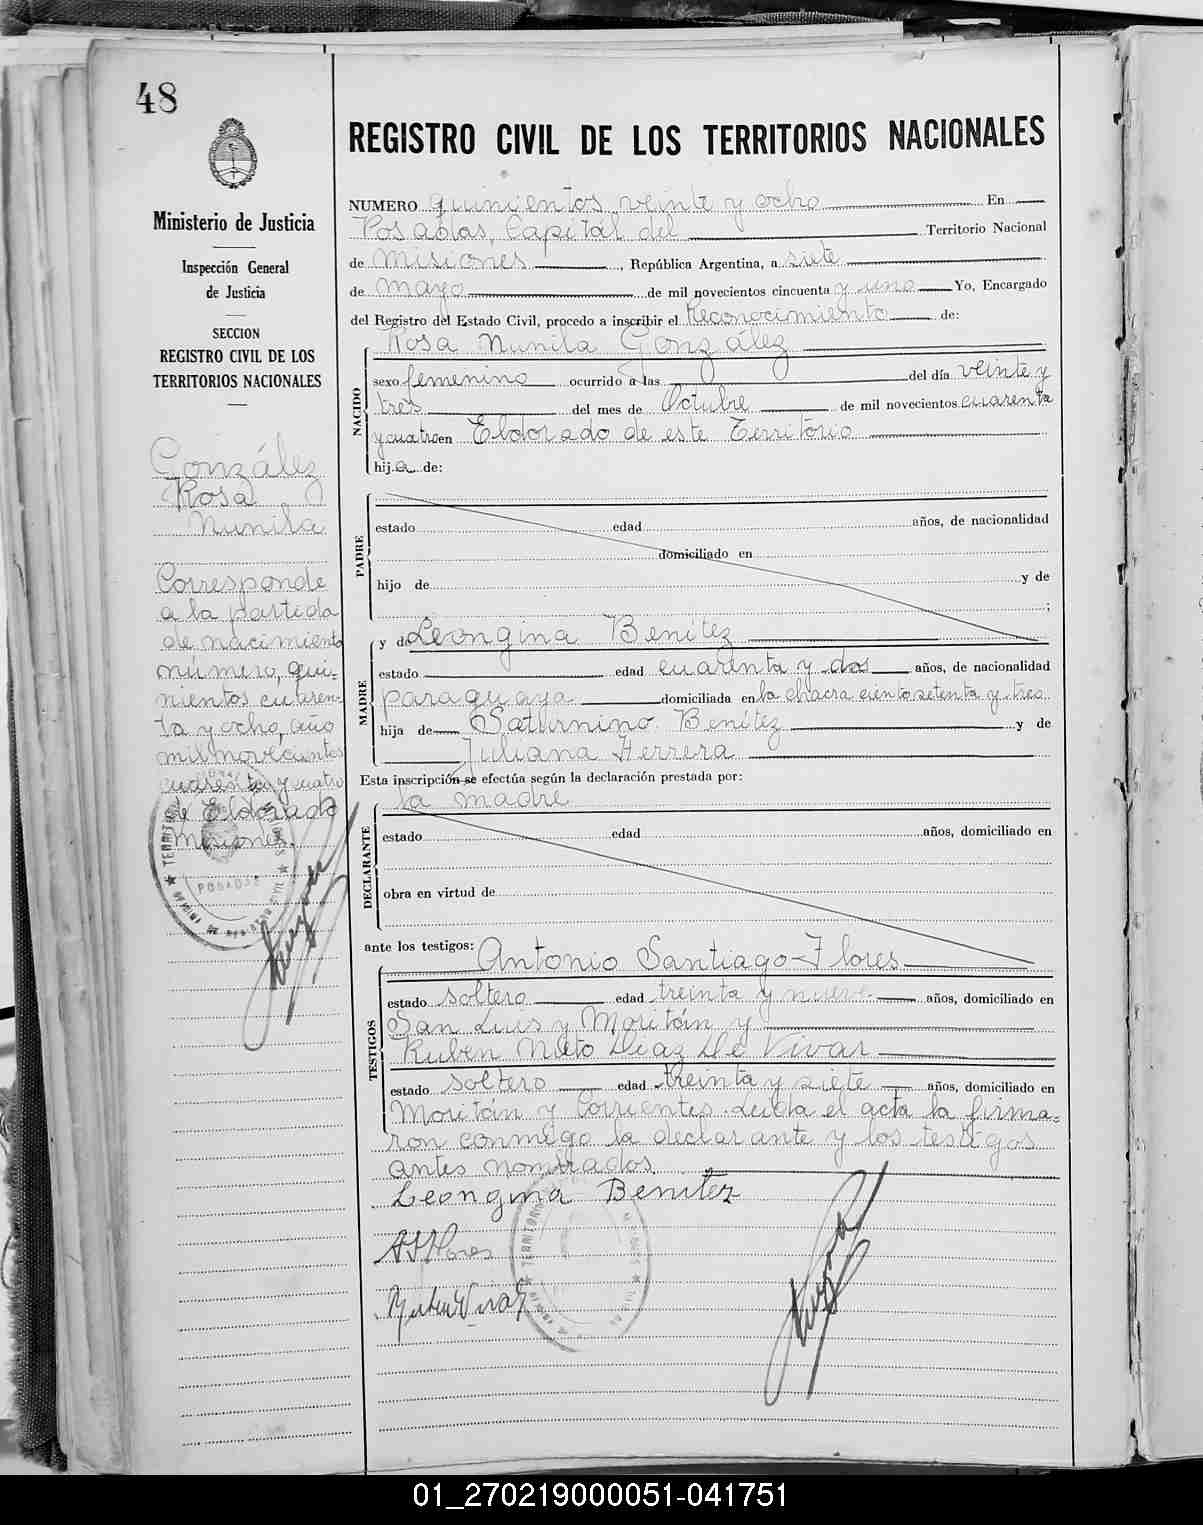 48
REGISTRO CIVIL DE LOS TERRITORIOS NACIONALES
Ministerio de Justicia
Inspección General
de Justicia
SECCION
REGISTRO CIVIL DE LOS
TERRITORIOS NACIONALES
González
Rosa
Nunila
Corresponde
a la partida
de nacimiento
número, qui-
nientos cuaren-
ta y ocho, año
mil novecientos
cuarenta y cuatro
de Eldorado
Misiones.
POSADAS
NUMERO quinientos veinte y ocho En
Posadas, Capital del Territorio Nacional
de Misiones, República Argentina, a siete
de mayo de mil novecientos cincuenta y uno Yo, Encargado
del Registro del Estado Civil, procedo a inscribir el Reconocimiento de:
NACIDO
Rosa Nunila González
sexo femenino ocurrido a las del día veinte y
tres del mes de Octubre de mil novecientos cuarenta
y cuatro en Eldorado de este Territorio
hija de:
PADRE
estado edad años, de nacionalidad
domiciliado en
hijo de y de
;
MADRE
y de Leongina Benítez
estado edad cuarenta y dos años, de nacionalidad
paraguaya domiciliada en la chacra ciento setenta y tres
hija de Saturnino Benítez y de
Juliana Herrera
Esta inscripción se efectúa según la declaración prestada por:
la madre
DECLARANTE
estado edad años, domiciliado en
obra en virtud de
ante los testigos: Antonio Santiago Flores
TESTIGOS
estado soltero edad treinta y nueve años, domiciliado en
San Luis y Moritán y
Ruben Nieto Díaz De Vivar
estado soltero edad treinta y siete años, domiciliado en
Moritán y Corrientes. Leida el acta la firma-
ron conmigo la declarante y los testigos
antes nombrados.
Leongina Benitez
ASFlores
01_270219000051-041751